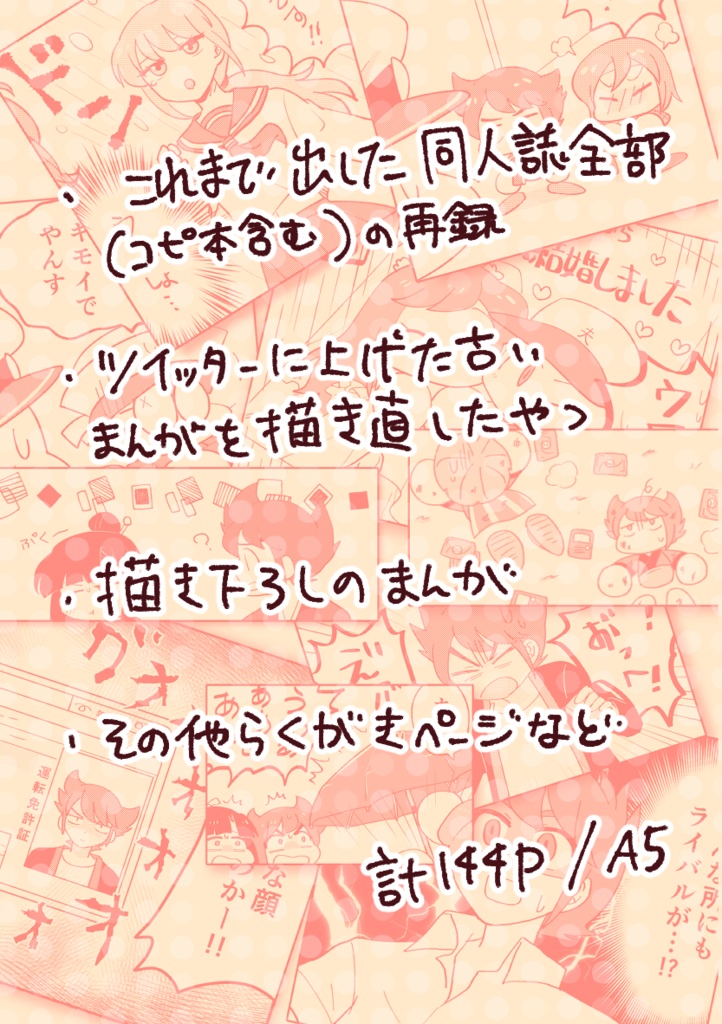 ・これまで出した同人誌全部
(コピ本含む)の再録
・ツイッターに上げた古い
まんがを描き直したやつ
・描き下ろしのまんが
・その他らくがきページなど
計144p/A5
ドン
キモイで
やんす
結婚しました
夫
ぷくー
?
おっ!
グオ
オオ
運転免許証
な顔
っかー!!
な所にも
ライバルが…!?